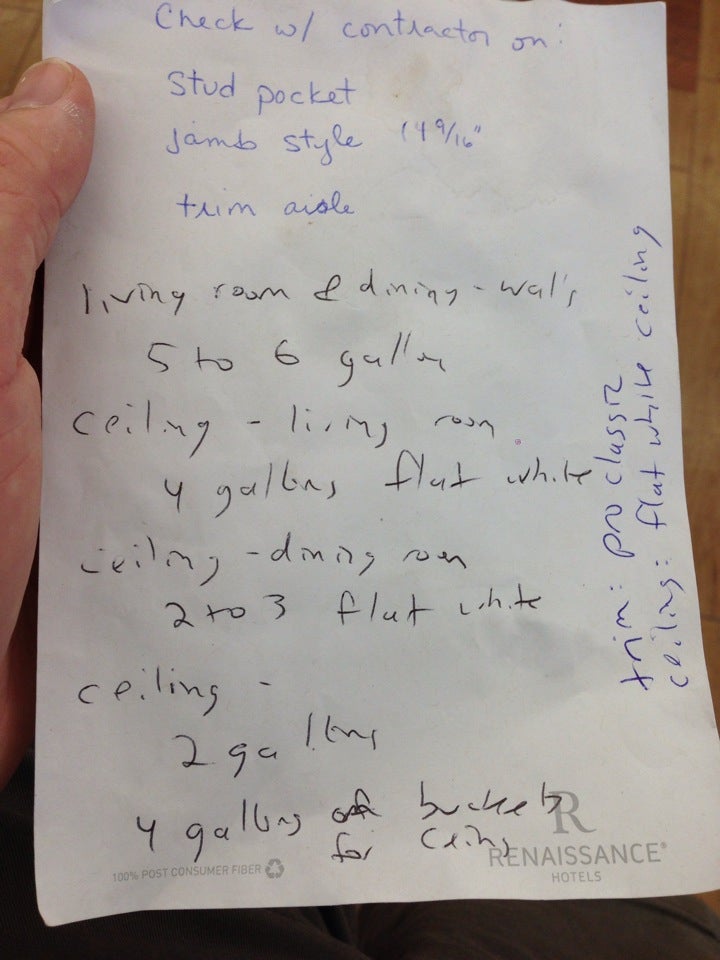 Check w/ contractor on:
Stud pocket
Jamb style (4 9/16"
trim aisle
living room & dining - walls
5 to 6 gallon
ceiling - living room
4 gallons flat white
ceiling - dining room
2 to 3 flat white
ceiling -
2 gallons
4 gallons of buckets
for ceiling
trim: pro classic
ceiling: flat white ceiling
R
RENAISSANCE®
HOTELS
100% POST CONSUMER FIBER